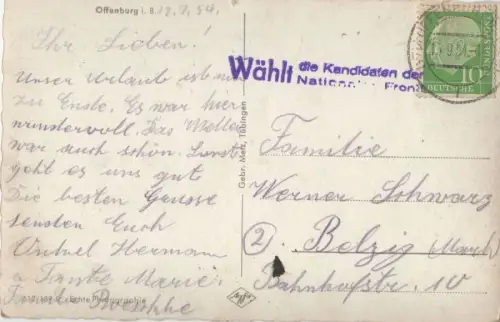 Offenburg i. B.
Ihr Lieben!
Unser Urlaub ist nun
zu Ende. Es war hier
wundervoll. Das Wetter
war auch schön. Sonst
geht es uns gut
Die besten Grüsse
senden Euch
Onkel Hermann
u Tante Marie
Echte Photographie
Gebr. Metz, Tübingen
Wählt die Kandidaten der
Front
10
DEUTSCHE
BUNDESPOST
Familie
Werner Schwarz
(2) Belzig (Mark)
Bahnhofstr. 10